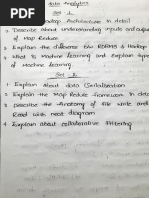 Data Analytics
Set 1
Hadoop Architecture in detail
2. Describe about understanding inputs and output
of Map Reduce
3. Explain the difference b/w RDBMS & Hadoop
4. What is Machine learning and Explain type
of Machine learning
Set 2
1. Explain about data Serialization
2. Explain the Map Reduce framework in deta
3. Describe the Anatomy of file write and
Read with neat diagram
4. Explain about collaborative Filtering